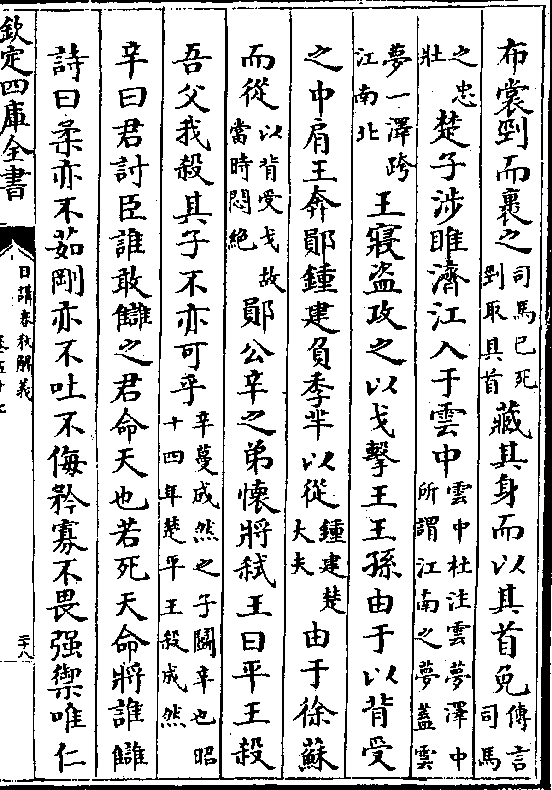 布裳剄而裹之司馬已死剄取其首藏其身而以其首免傳言司馬
之忠壯楚子涉雎濟江入于雲中雲中杜注雲夢澤中所謂江南之夢蓋雲
夢一澤跨江南北王寢盜攻之以戈擊王王孫由于以背受
之中肩王奔鄖鍾建負季羋以從鍾建楚大夫由于徐蘇
而從以背受戈故當時悶絶鄖公辛之弟懷將弑王曰平王殺
吾父我殺其子不亦可乎辛蔓成然之子鬭辛也昭十四年楚平王殺成然
辛曰君討臣誰敢讎之君命天也若死天命將誰讎
詩曰柔亦不茹剛亦不吐不侮矜寡不畏强禦唯仁
欽定四庫全書
日講春秋解義
二十八